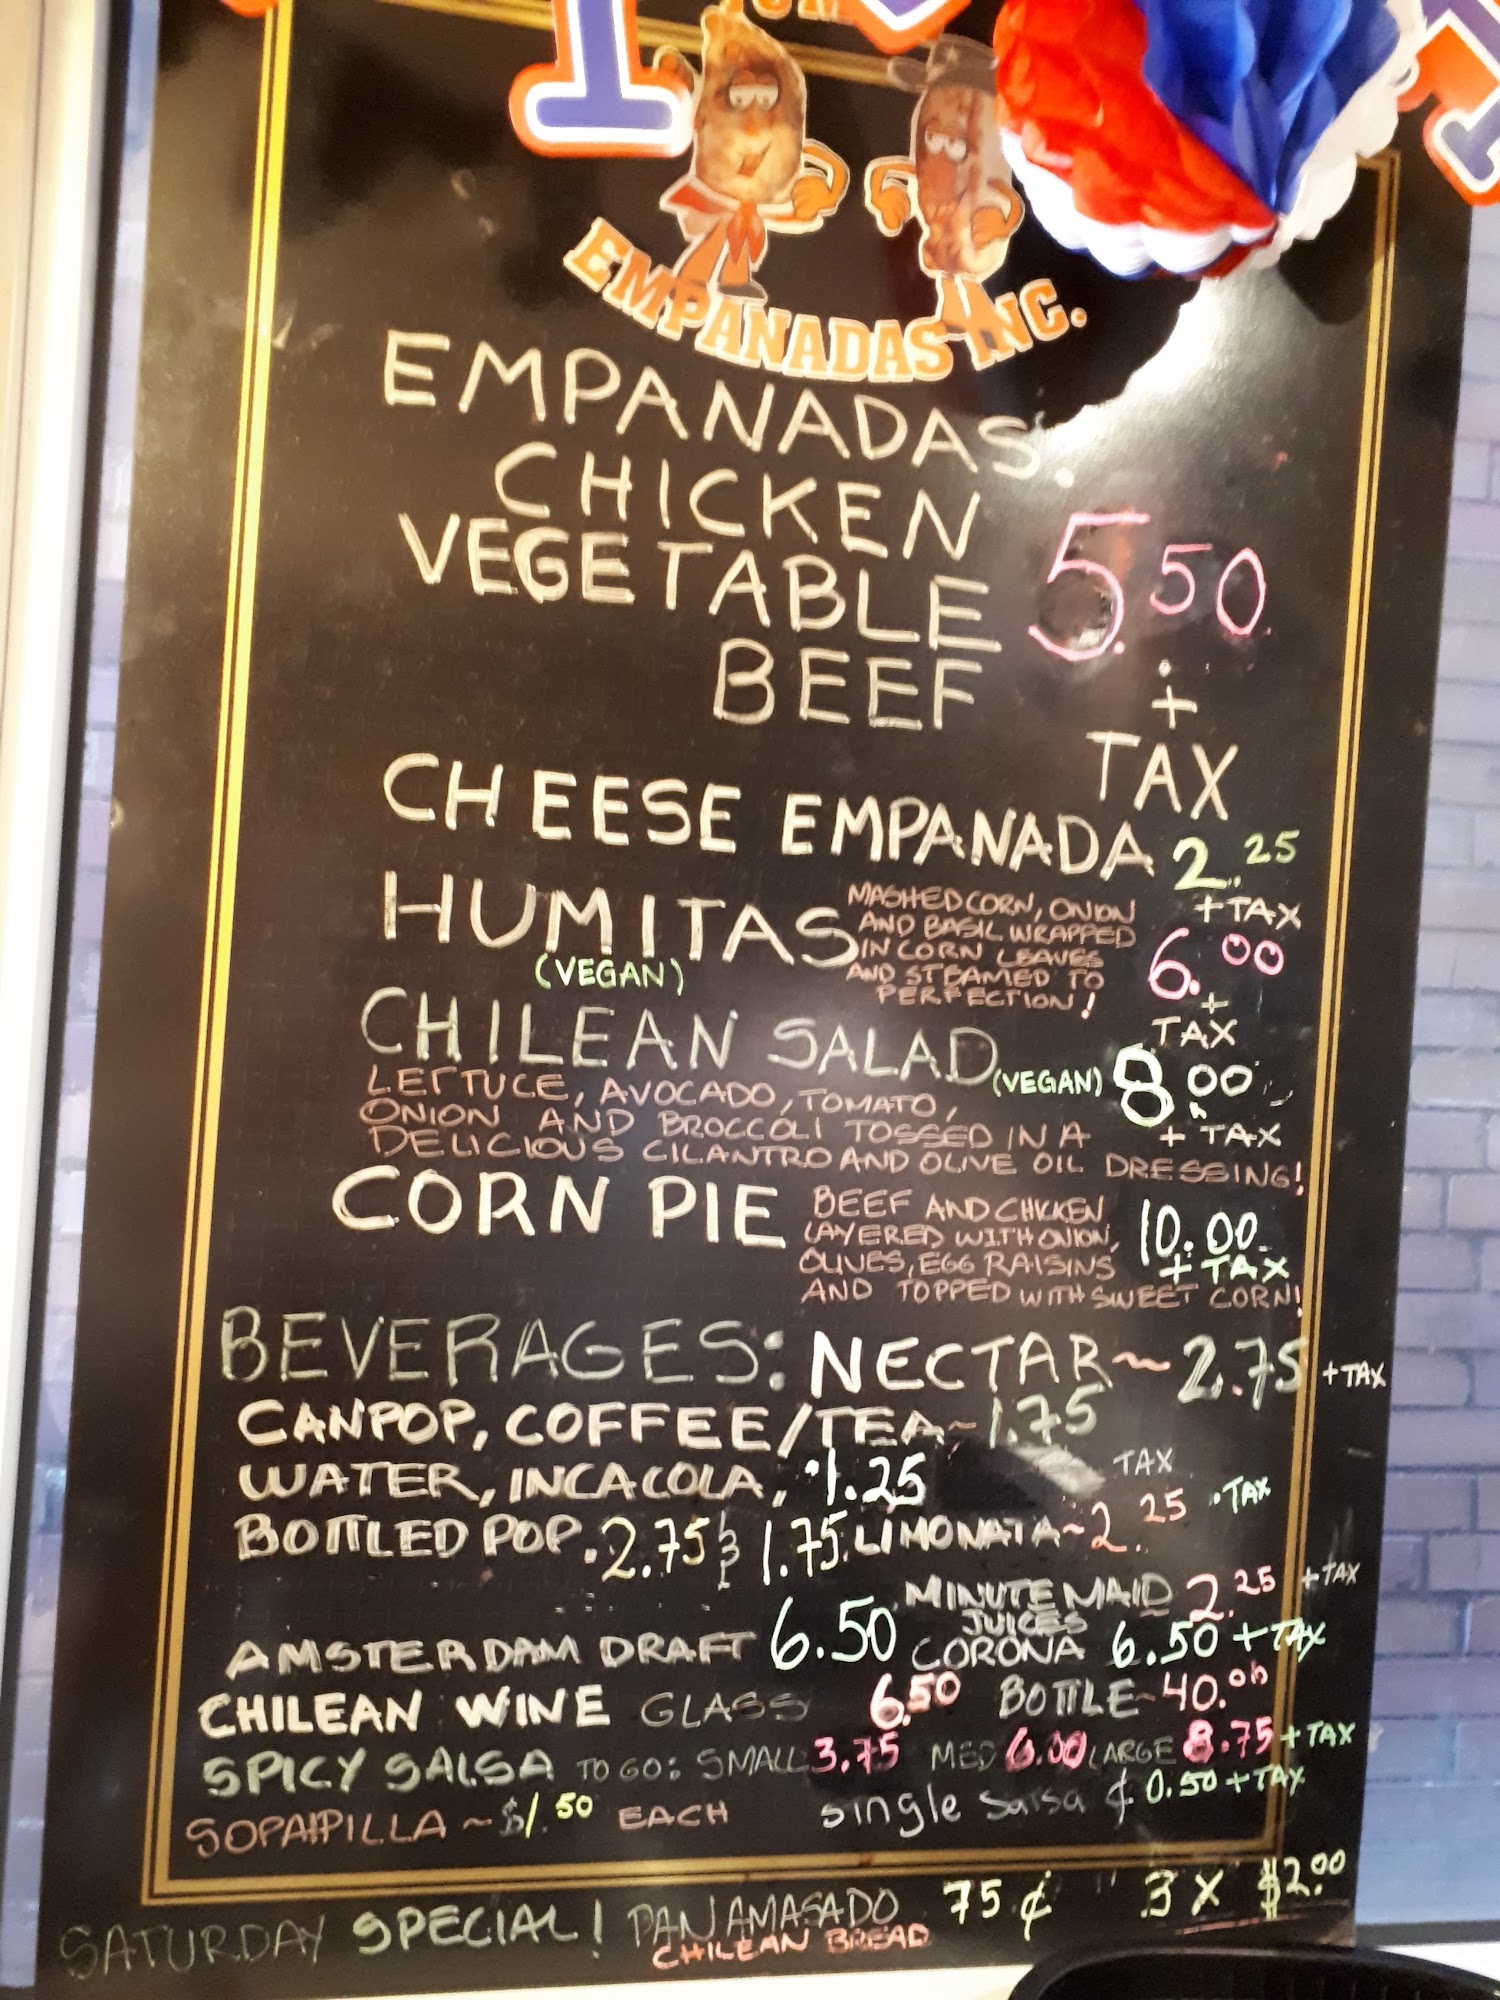 EMPANADAS INC.
EMPANADAS:
CHICKEN
VEGETABLE 5.50
BEEF +
TAX
CHEESE EMPANADA 2.25
+ TAX
HUMITAS MASHED CORN, ONION
AND BASIL WRAPPED
IN CORN LEAVES 6.00
(VEGAN) AND STEAMED TO
PERFECTION! +
TAX
CHILEAN SALAD (VEGAN) 8.00
LETTUCE, AVOCADO, TOMATO,
ONION AND BROCCOLI TOSSED IN A + TAX
DELICIOUS CILANTRO AND OLIVE OIL DRESSING!
CORN PIE BEEF AND CHICKEN
LAYERED WITH ONION, 10.00
OLIVES, EGG RAISINS + TAX
AND TOPPED WITH SWEET CORN!
BEVERAGES: NECTAR ~ 2.75 + TAX
CANPOP, COFFEE/TEA ~ 1.75
WATER, INCACOLA, 1.25 TAX
BOTTLED POP. 2.75 & 1.75. LIMONATA ~ 2.25 TAX
MINUTE MAID 2.25 + TAX
JUICES
AMSTERDAM DRAFT 6.50 CORONA 6.50 + TAX
CHILEAN WINE GLASS 6.50 BOTTLE ~ 40.00
SPICY SALSA TO GO: SMALL 3.75 MED 6.00 LARGE 8.75 + TAX
SOPAIPILLA ~ $1.50 EACH single salsa ¢ 0.50 + TAX
SATURDAY SPECIAL! PAN AMASADO 75¢ 3 X $2.00
CHILEAN BREAD